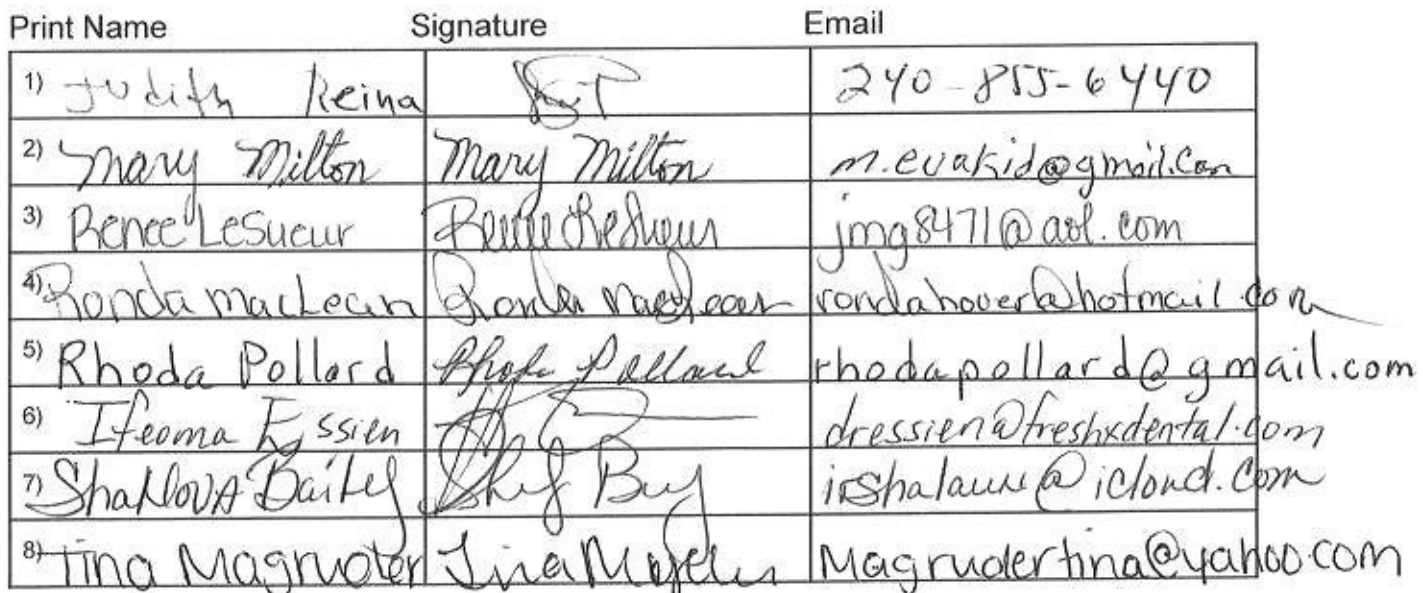 Print Name Signature Email
1) Judith Reina 240-855-6440
2) Mary Milton Mary Milton m.evakid@gmail.com
3) Renee LeSueur Renee LeSueur jmg8471@aol.com
4) Ronda MacLean Ronda MacLean rondahover@hotmail.com
5) Rhoda Pollard Rhoda Pollard rhodapollard@gmail.com
6) Ifeoma Essien dressien@freshxdental.com
7) Bailey @icloud.com
8) Tina Magruder Tina Magruder Magrudertina@yahoo.com